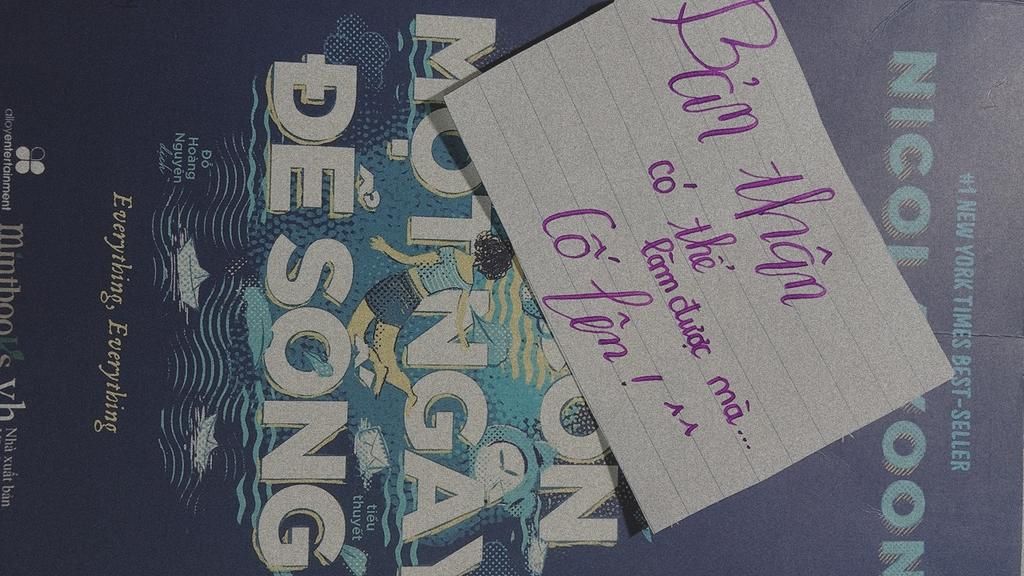 #1 NEW YORK TIMES BEST-SELLER
NICOLA YOON
Bản thân
có thể làm được mà...
Cố lên! ^^
CÒN
MỘT NGÀY
ĐỂ SỐNG
tiểu thuyết
Đỗ
Hoàng
Nguyên
dịch
Everything, Everything
alloyentertainment
mintbooks
Nhà xuất bản